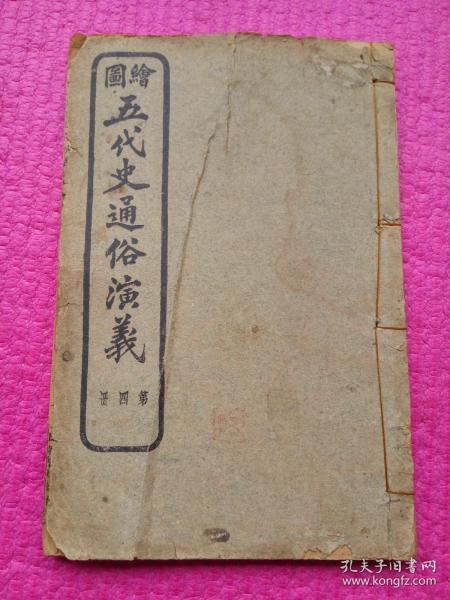 繪圖
五代史通俗演義
第四冊
孔夫子旧书网
www.kongfz.com